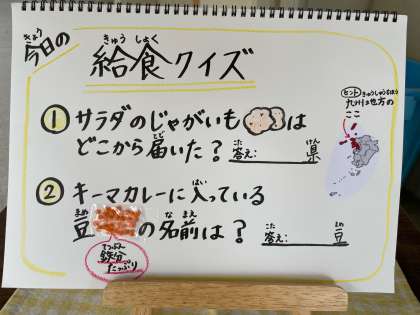 きょう
今日の
きゅう しょく
給食クイズ
① サラダのじゃがいもは
とど
どこから届いた？
こた
答え: 県
けん
ヒント
きゅうしゅうちほう
九州地方の
ココ
② キーマカレーに入っている
はい
まめ な まえ
豆の名前は？
こた まめ
答え: 豆
てつぶん
鉄分
たっぷり